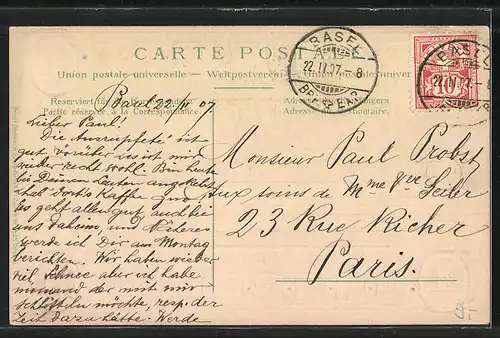 CARTE POSTALE
Union postale universelle — Weltpostverein — Unione postale univer
Reserviert für
Partie réservée à la Correspondance.
Adresse
BASEL
22.II.07. - 8
BASEL
22.II.07. - 8
10
Basel 22. II. 07
Lieber Paul!
Die ist
gut vorüber es ist mir
wieder recht wohl. Bin heute
bei Deinen Leuten
hab' dort z Kaffee
Es geht allen gut auch bei
uns daheim, und Näheres
werde ich Dir am Montag
berichten. Wir haben wieder
viel Schnee aber ich habe
niemand der mit mir
schlitteln möchte, resp. der
Zeit dazu hätte. Werde
Monsieur Paul Probst
aux soins de Mme Vve Seiler
23 Rue Richer
Paris.